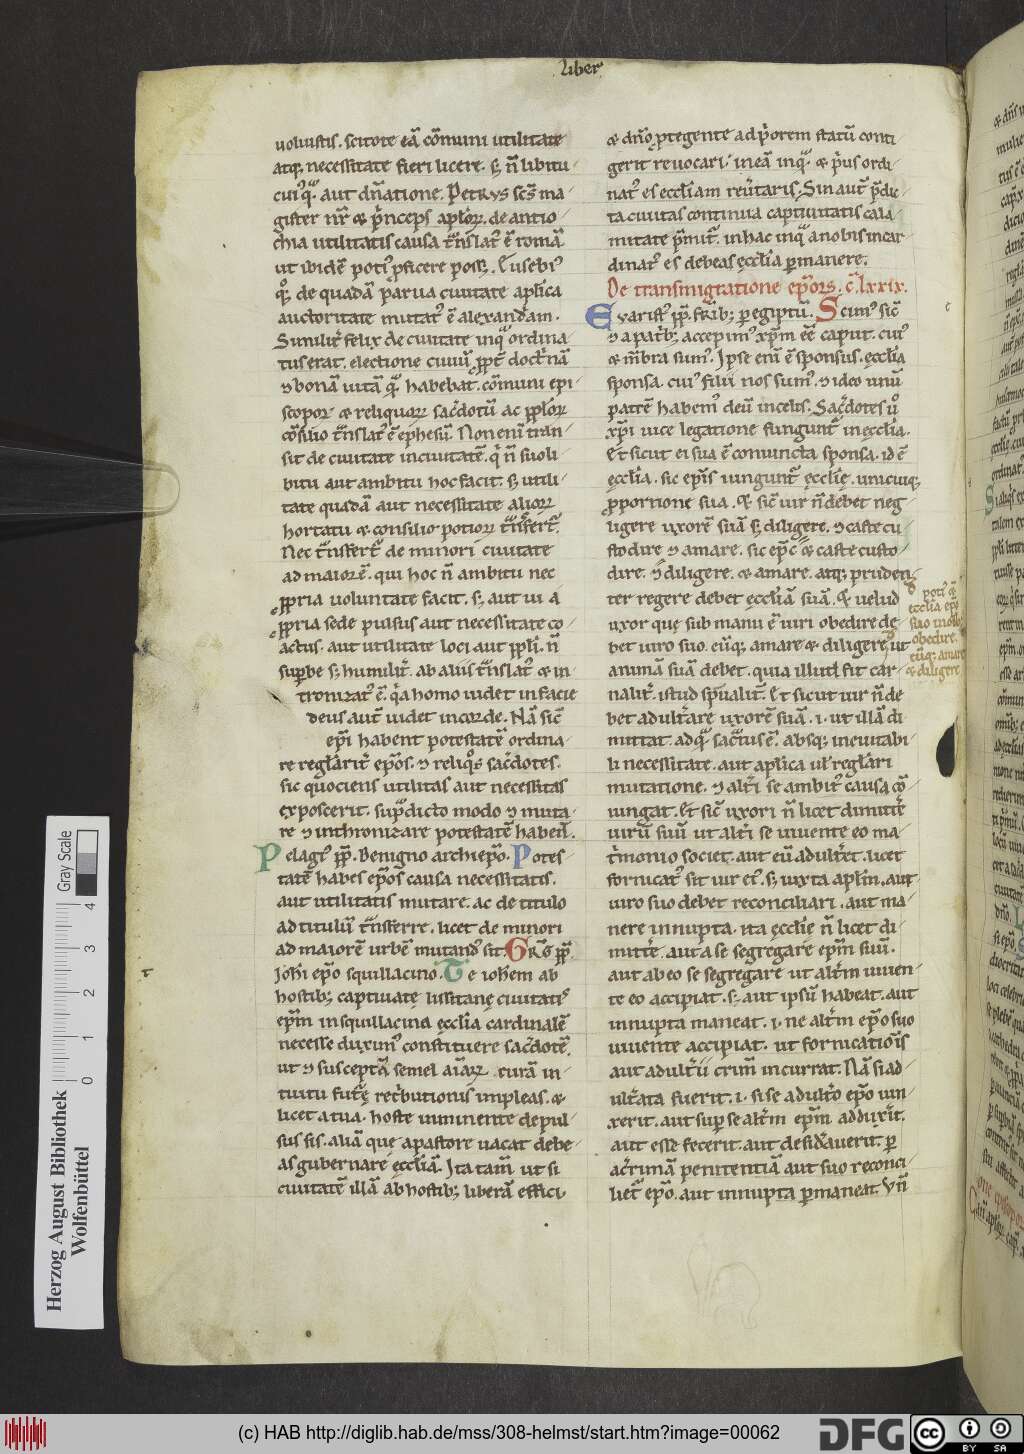 liber
uoluistis. scitote eā cōmuni utilitate
atq; necessitate fieri licere. s; n̄ libitu
cui᷒q̄. aut dn̄atione. Petrus scs̄ ma
gister nr̄ & p̄nceps aplōꝝ. de antio
chia utilitatis causa t̄nslat᷒ ē romā
ut ibidē poti᷒ ꝓficere poss;. Eusebi᷒
q°; de quadā parua ciuitate aplīca
auctoritate mutat᷒ ē alexandriam.
Similit̄ felix de ciuitate inq̄ ordina
tus erat. electione ciuiū ꝓpt̄ doctⁱnā
⁊ bonā uitā q̄ habebat. cōmuni epi
scopoꝝ & reliquoꝝ sac̄dotū ac ppl̄oꝝ
cōsilio t̄nslat᷒ ē ephesū. Non enī tran
sit de ciuitate in ciuitatē. qⁱ n̄ suo li
bitu aut ambitu hoc facit. s; utili
tate quadā aut necessitate alioꝝ
hortatu & consilio potioꝝ t̄nsfert᷒.
Nec t̄nsfert᷒ de minori ciuitate
ad maiorē. qui hoc n̄ ambitu nec
ꝓpria uoluntate facit. s; aut ui a
ꝓpria sede pulsus aut necessitate co
actus. aut utilitate loci aut ppl̄i. n̄
supbe s; humilit̄. ab aliis t̄nslat᷒ & in
tronizat᷒ ē. qⁱa homo uidet in facie
deus aut̄ uidet in corde. Nā sic̄
ep̄i habent potestatē ordina
re regl̄arit̄ ep̄os. ⁊ reliq°s sac̄dotes.
sic quociens utilitas aut necessitas
exposcerit. sup̄dicto modo ⁊ muta
re ⁊ inthronizare potestatē habent.
Pelagi᷒ pp̄. Benigno archiep̄o. Potes
tatē habes ep̄os causa necessitatis.
aut utilitatis mutare. ac de titulo
ad titulū t̄nsferre. licet de minori
ad maiorē urbē mutand᷒ sit. Grḡ pp̄
Joh̄i ep̄o squillacino. Te ioh̄em ab
hostib; captiuatę lissitanę ciuitatis
ep̄m in squillacina ęcclia cardinalē
necesse duxim᷒ constituere sac̄dotē.
ut ⁊ susceptā semel aīaꝝ curā in
tuitu futurę retⁱbutionis impleas. &
licet a tua. hoste imminente depul
sus sis. aliā que a pastore uacat debe
as gubernare eccliā. Ita tam̄ ut si
ciuitatē illā ab hostib; liberā effici
& dn̄o ptegente ad pⁱorem statū conti
gerit reuocari. in eā inq̄ & pⁱus ordi
nat᷒ es eccliam reūtaris. Sin aut̄ p̄dic
ta ciuitas continua captiuitatis cala
mitate p̄mit̄. in hac inq̄ a nobis incar
dinat᷒ es debeas ęccliā pmanere.
De transmigratione ep̄ors. c̄ lxxix.
Euarist᷒ pp̄. fr̄ib; p egiptū. Scim᷒ sic̄
⁊ a patⁱb; accepim᷒ xp̄m eē caput. cui᷒
& mēbra sum᷒. Ipse enī ē sponsus. ęcclia
sponsa. cui᷒ filii nos sum᷒. ⁊ ideo unū
patrē habem᷒ deū in celis. Sac̄dotes u°
xp̄i uice legatione fungunt̄ in ęcclia.
Et sicut ei sua ē coniuncta sponsa. id ē
ęcclia. sic ep̄is iungunt̄ ęcclię. unicuiq;
ꝓ portione sua. & sic̄ uir n̄ debet neg
ligere uxorē suā s; diligere. ⁊ caste cu
stodire ⁊ amare. sic ep̄c & caste custo
dire. ⁊ diligere. & amare. atq; pruden
ter regere debet ęccliā suā. & uelud
uxor que sub manu ē uiri obedire de
bet uiro suo. eūq; amare & diligere. ut
animā suā debet. quia illud fit car
nalit̄. istud sp̄ualit̄. Et sicut uir n̄ de
bet adult̄are uxorē suā. i. ut illā di
mittat. ad q̄ sac̄tus ē. absq; ineuitabi
li necessitate. aut aplica ul̄ regl̄ari
mutatione. ⁊ alt̄i se ambit᷒ causa cō
iungat. Et sic̄ uxori n̄ licet dimitte
uirū suū ut alt̄i se uiuente eo ma
tⁱmonio societ. aut eū adult̄et. licet
fornicat᷒ sit uir ei᷒. s; iuxta aplm̄. aut
uiro suo debet reconciliari. aut ma
nere innupta. ita ęcclię n̄ licet di
mitte. aut a se segregare ep̄m suū.
aut ab eo se segregare ut alt̄m uiuen
te eo accipiat. s; aut ipsū habeat. aut
innupta maneat. i. ne alt̄m ep̄o suo
uiuente accipiat. ut fornicatiōis
aut adult̄ii crim̄ incurrat. Nā si ad
ult̄ata fuerit. i. si se adult̄o ep̄o iun
xerit. aut sup se alt̄m ep̄m adduxit̄.
aut esse fecerit. aut desid̄auerit. p
ac̄rimā penitentiā aut suo reconci
liet̄ ep̄o. aut innupta pmaneat. Vn̄
ecclia
obedire.
eūq; amare
& diligere
Herzog August Bibliothek
Wolfenbüttel
Gray Scale
0 1 2 3 4
(c) HAB http://diglib.hab.de/mss/308-helmst/start.htm?image=00062
DFG
cc BY SA